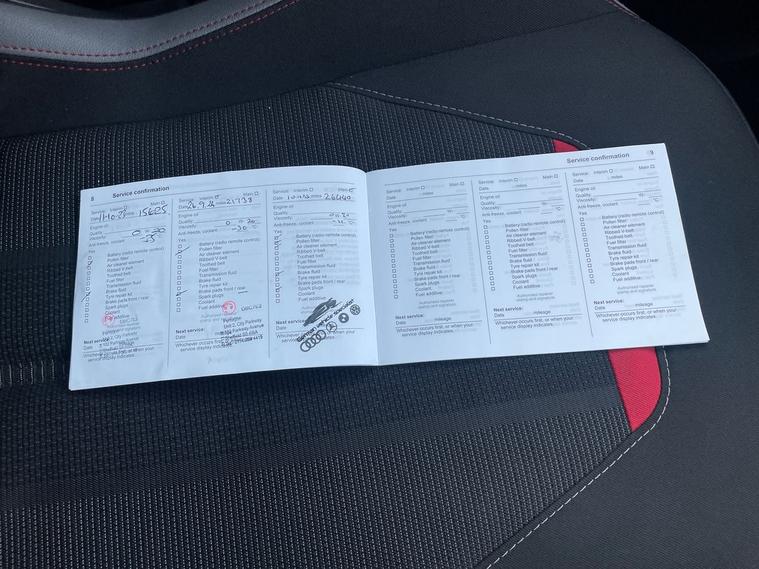 8
Service confirmation
Service: Interim Main
Date miles 15625
Engine oil
Quality
Viscosity: 0 = 20
Anti-freeze, coolant -35
Yes
Battery (radio remote control)
Pollen filter
Air cleaner element
Ribbed V-belt
Toothed belt
Fuel filter
Transmission fluid
Brake fluid
Tyre repair kit
Brake pads front / rear
Spark plugs
Coolant
Fuel additive
Next service:
Date
Whichever occurs first, or when your
service display indicates.
Service: Interim Main
Date 21738
Engine oil
Quality
Viscosity: 0 = 20
Anti-freeze, coolant -30 °C
Yes
Battery (radio remote control)
Pollen filter
Air cleaner element
Ribbed V-belt
Toothed belt
Fuel filter
Transmission fluid
Brake fluid
Tyre repair kit
Brake pads front / rear
Spark plugs
Coolant
Fuel additive
Unit 2, City Parkway
Next service:
Date
Whichever occurs first, or when your
service display indicates.
Service: Interim Main
Date 26440
Engine oil
Quality
Viscosity: 0=20
Anti-freeze, coolant
Yes
Battery (radio remote control)
Pollen filter
Air cleaner element
Ribbed V-belt
Toothed belt
Fuel filter
Transmission fluid
Brake fluid
Tyre repair kit
Brake pads front / rear
Spark plugs
Coolant
Fuel additive
Next service:
Date
Whichever occurs first, or when your
service display indicates.
Service confirmation
9
Service: Interim Main
Date miles
Engine oil
Quality
Viscosity:
Anti-freeze, coolant
Yes
Battery (radio remote control)
Pollen filter
Air cleaner element
Ribbed V-belt
Toothed belt
Fuel filter
Transmission fluid
Brake fluid
Tyre repair kit
Brake pads front / rear
Spark plugs
Coolant
Fuel additive
Authorised repairer
stamp and signature.
Next service:
Date mileage
Whichever occurs first, or when your
service display indicates.
Service: Interim Main
Date miles
Engine oil
Quality
Viscosity:
Anti-freeze, coolant
Yes
Battery (radio remote control)
Pollen filter
Air cleaner element
Ribbed V-belt
Toothed belt
Fuel filter
Transmission fluid
Brake fluid
Tyre repair kit
Brake pads front / rear
Spark plugs
Coolant
Fuel additive
Authorised repairer
stamp and signature.
Next service:
Date mileage
Whichever occurs first, or when your
service display indicates.
Service: Interim Main
Date miles
Engine oil
Quality
Viscosity:
Anti-freeze, coolant
Yes
Battery (radio remote control)
Pollen filter
Air cleaner element
Ribbed V-belt
Toothed belt
Fuel filter
Transmission fluid
Brake fluid
Tyre repair kit
Brake pads front / rear
Spark plugs
Coolant
Fuel additive
Authorised repairer
stamp and signature.
Next service:
Date mileage
Whichever occurs first, or when your
service display indicates.